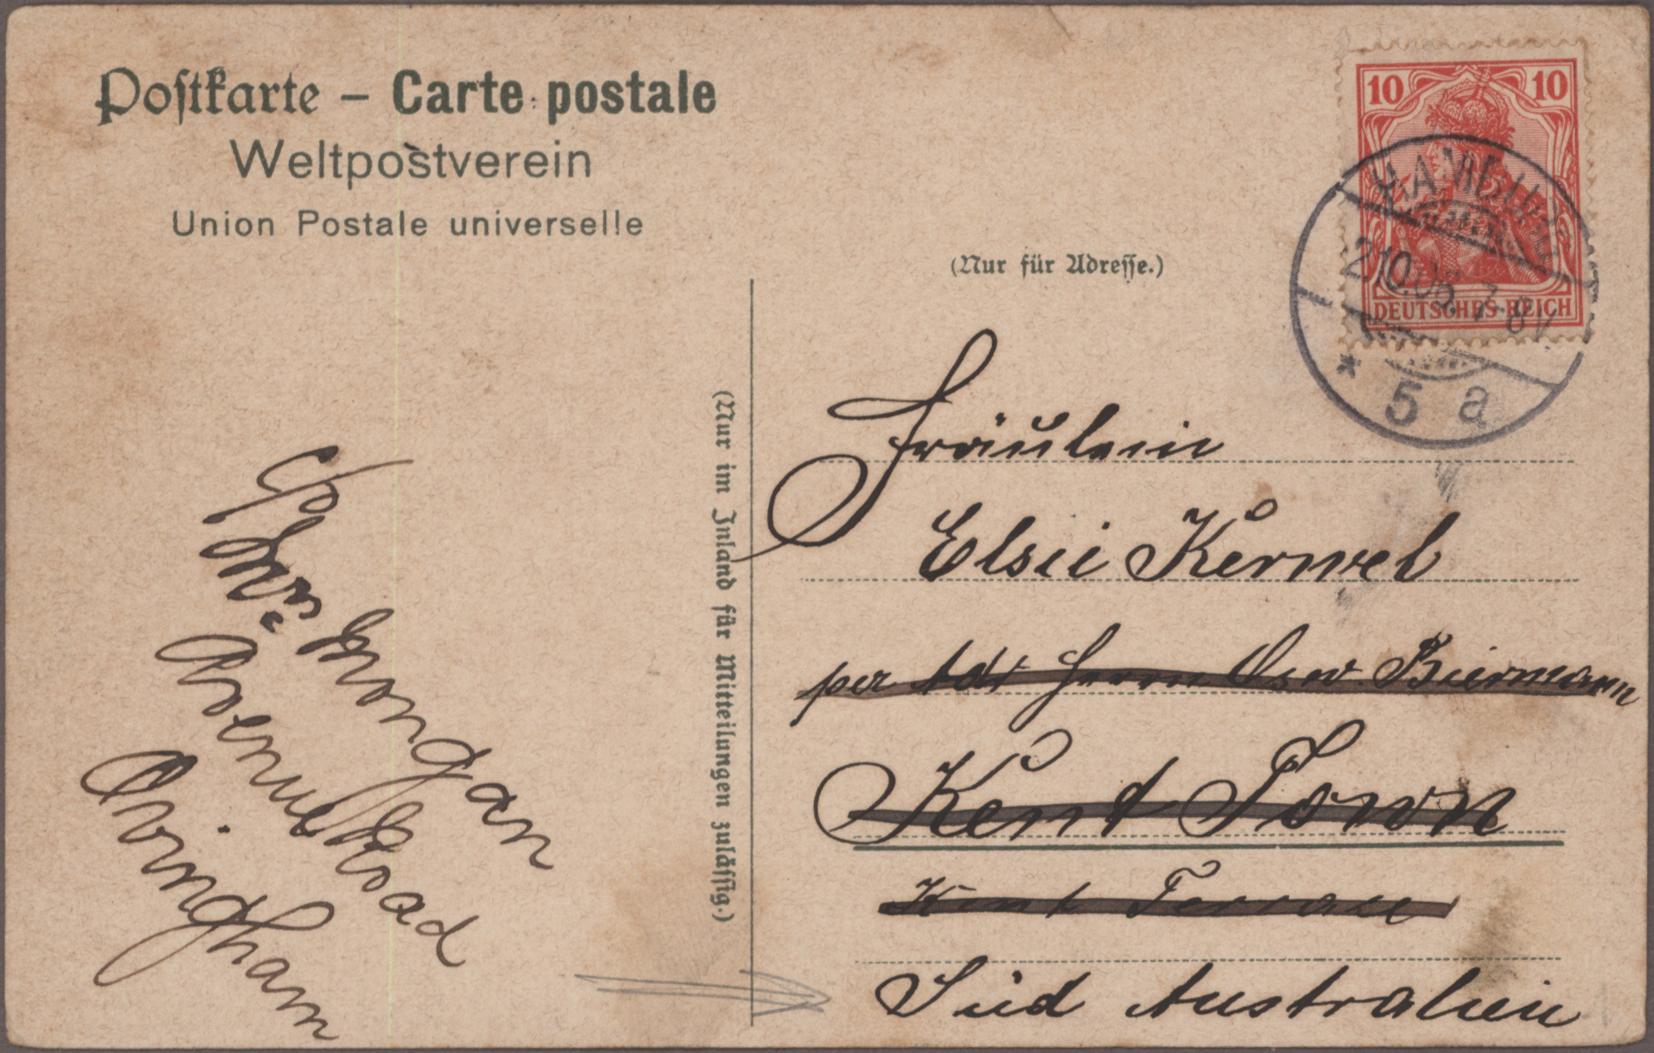 Postkarte – Carte postale
Weltpostverein
Union Postale universelle
(Nur für Adresse.)
(Nur im Inland für Mitteilungen zulässig.)
10 10
DEUTSCHES REICH
HAMBURG
2.10.05. 7-8V
* 5 a
Fräulein
Elsie Kerwel
per Adr Herrn Osw. Biermann
Kent Town
Kent Terrace
Süd Australien
C/o Mrs Mongan
Avenue Road
Ovingham